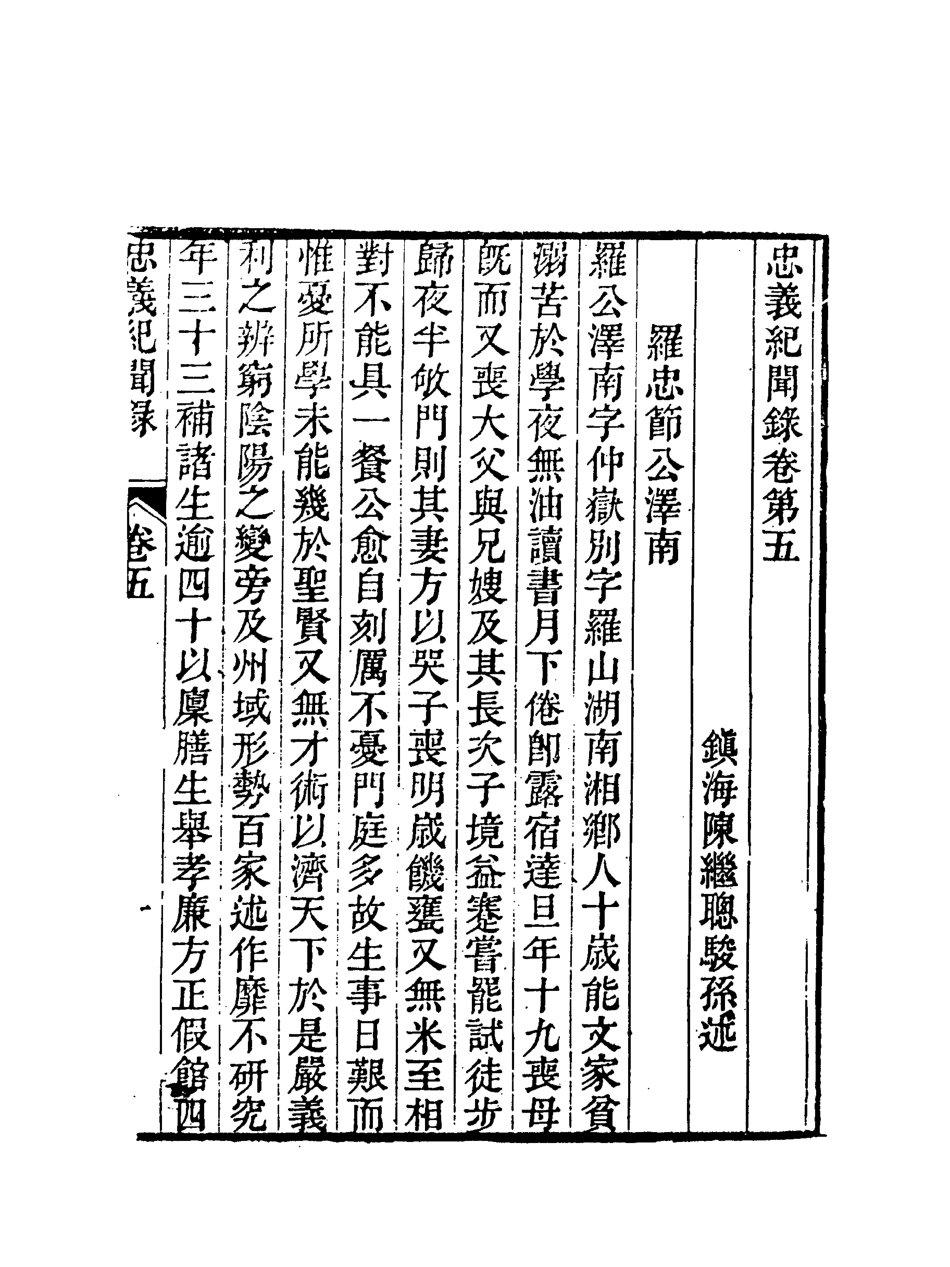 忠義紀聞錄卷第五
鎭海陳繼聰駿孫述
羅忠節公澤南
羅公澤南字仲嶽別字羅山湖南湘鄕人十歲能文家貧
溺苦於學夜無油讀書月下倦卽露宿達旦年十九喪母
旣而又喪大父與兄嫂及其長次子境益蹇嘗罷試徒步
歸夜半敂門則其妻方以哭子喪明歲饑甕又無米至相
對不能具一餐公愈自刻厲不憂門庭多故生事日艱而
惟憂所學未能幾於聖賢又無才術以濟天下於是嚴義
利之辨窮陰陽之變旁及州域形勢百家述作靡不研究
年三十三補諸生逾四十以廩膳生舉孝廉方正假館四
忠義紀聞錄 卷五